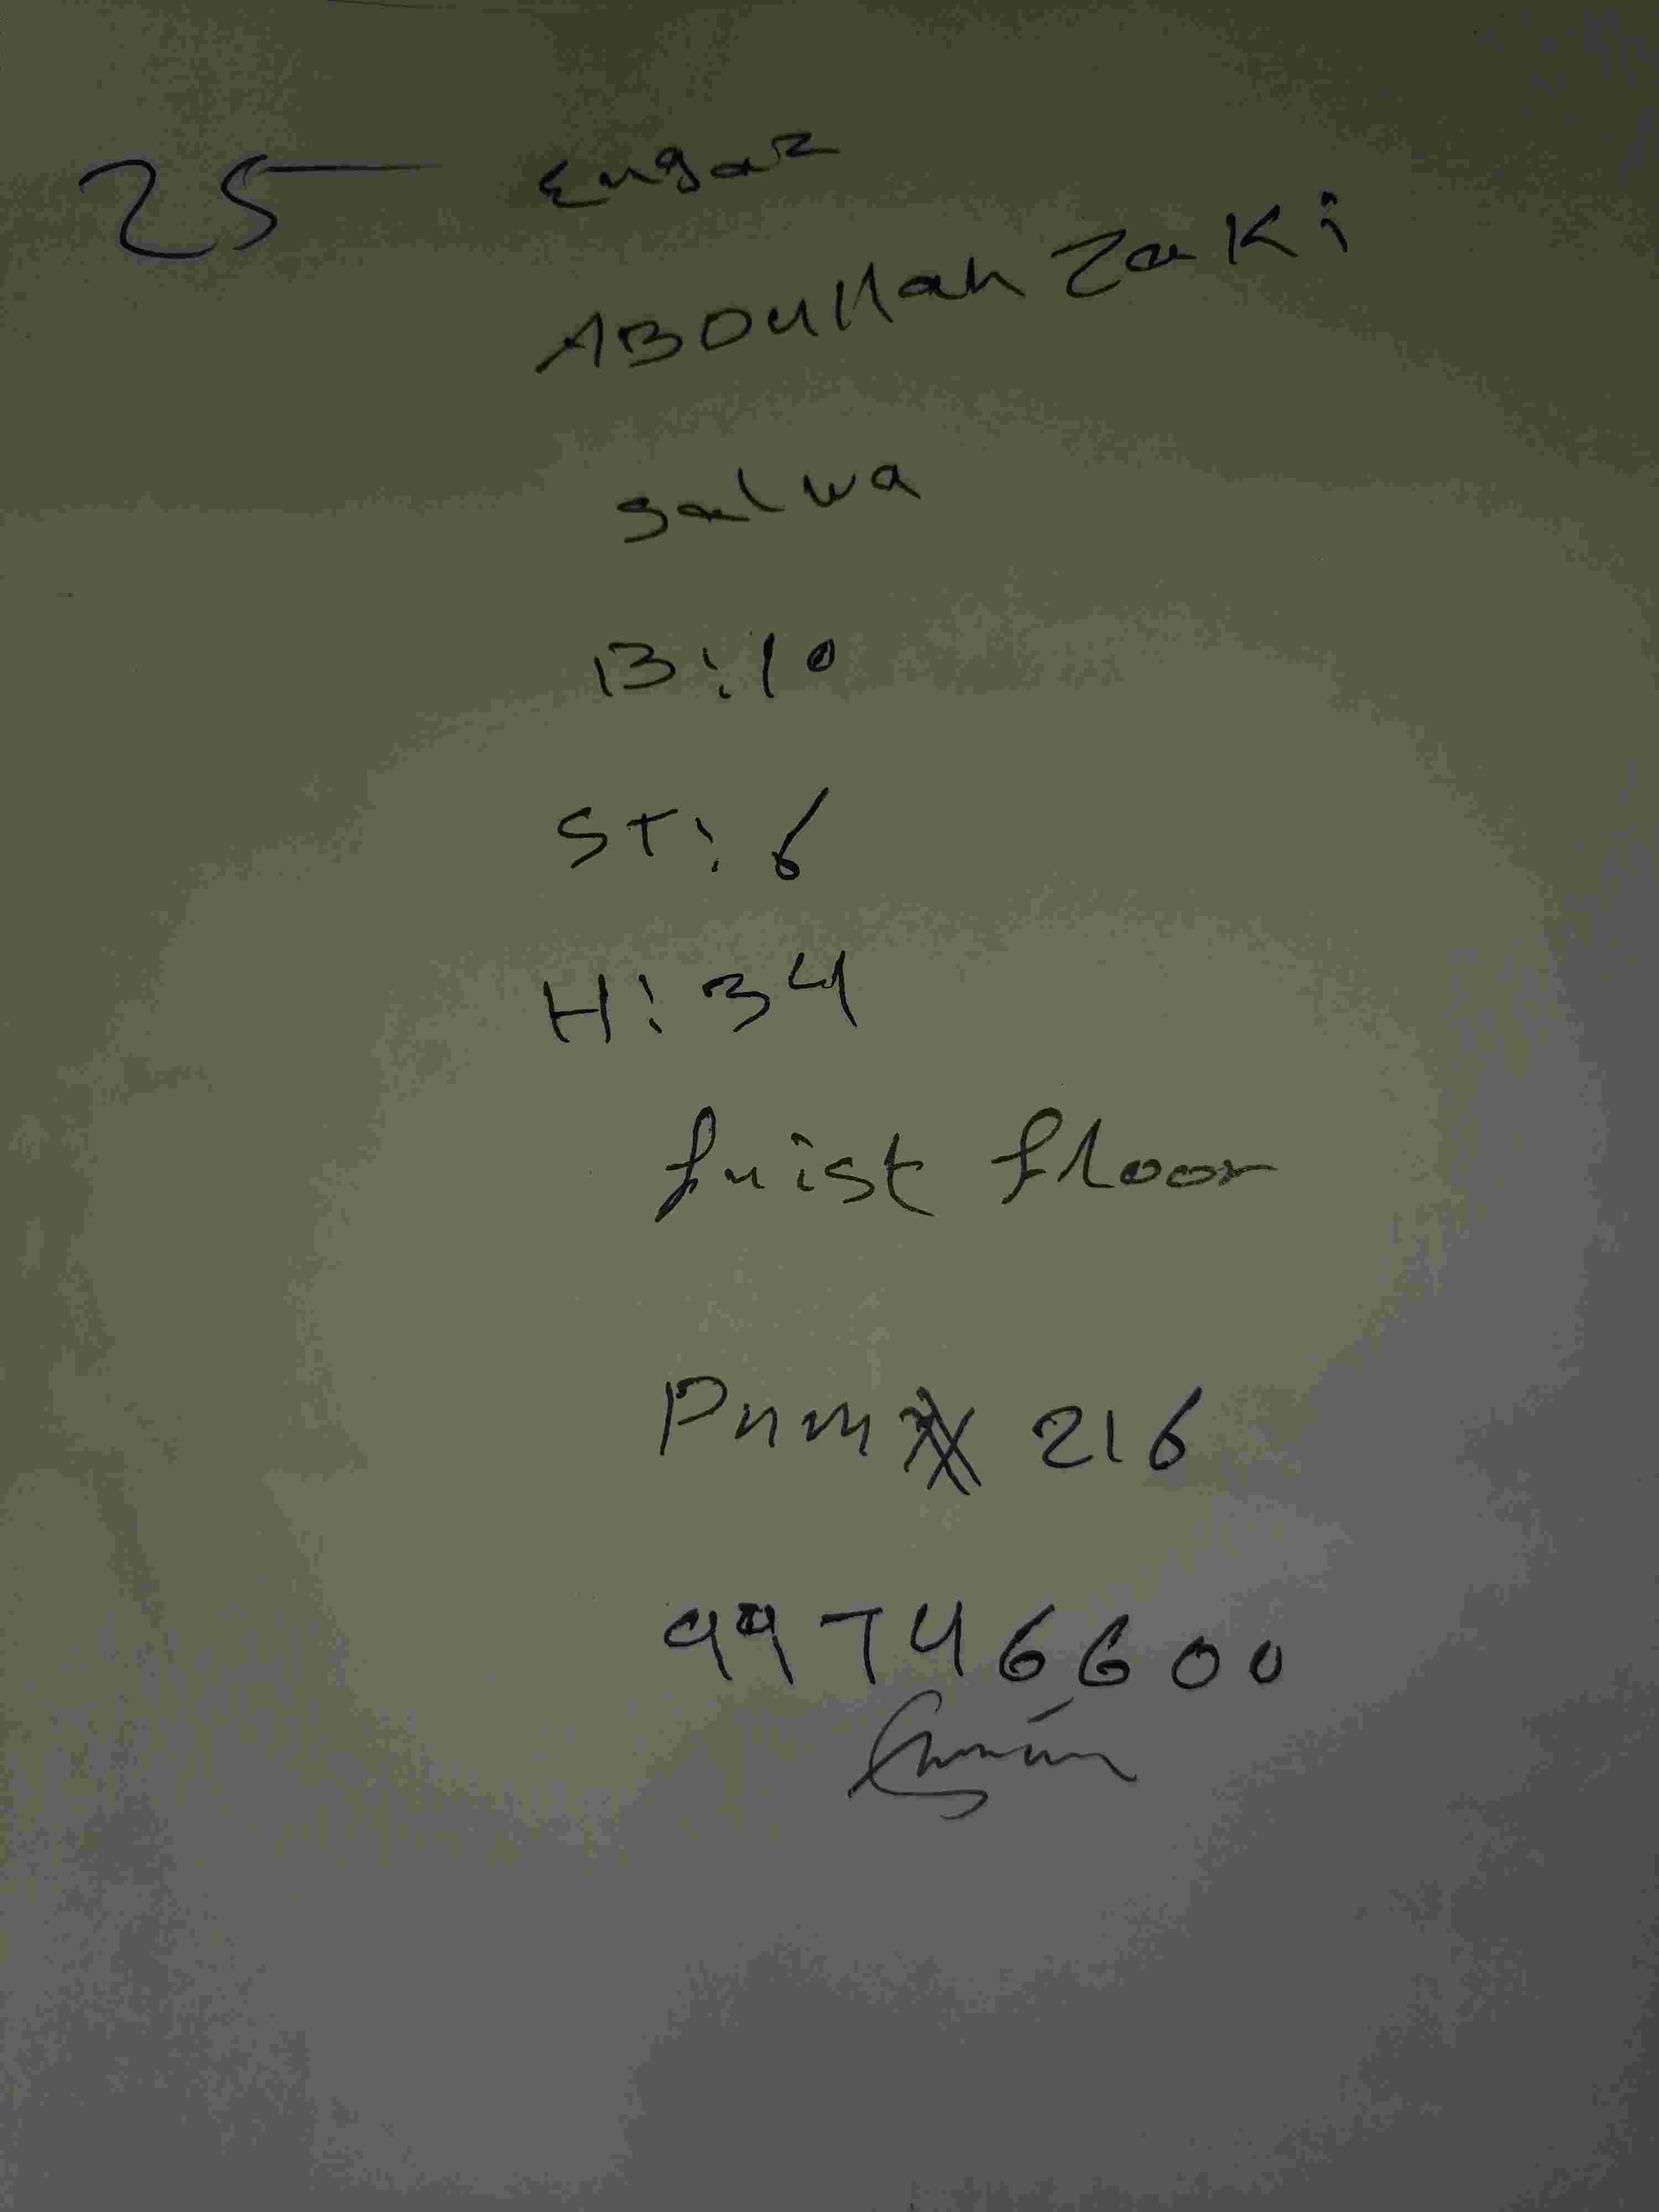 25 Engaz
ABDullah Zaki
salwa
B:10
ST: 6
H: 34
fuist floor
Pnm 216
99746600